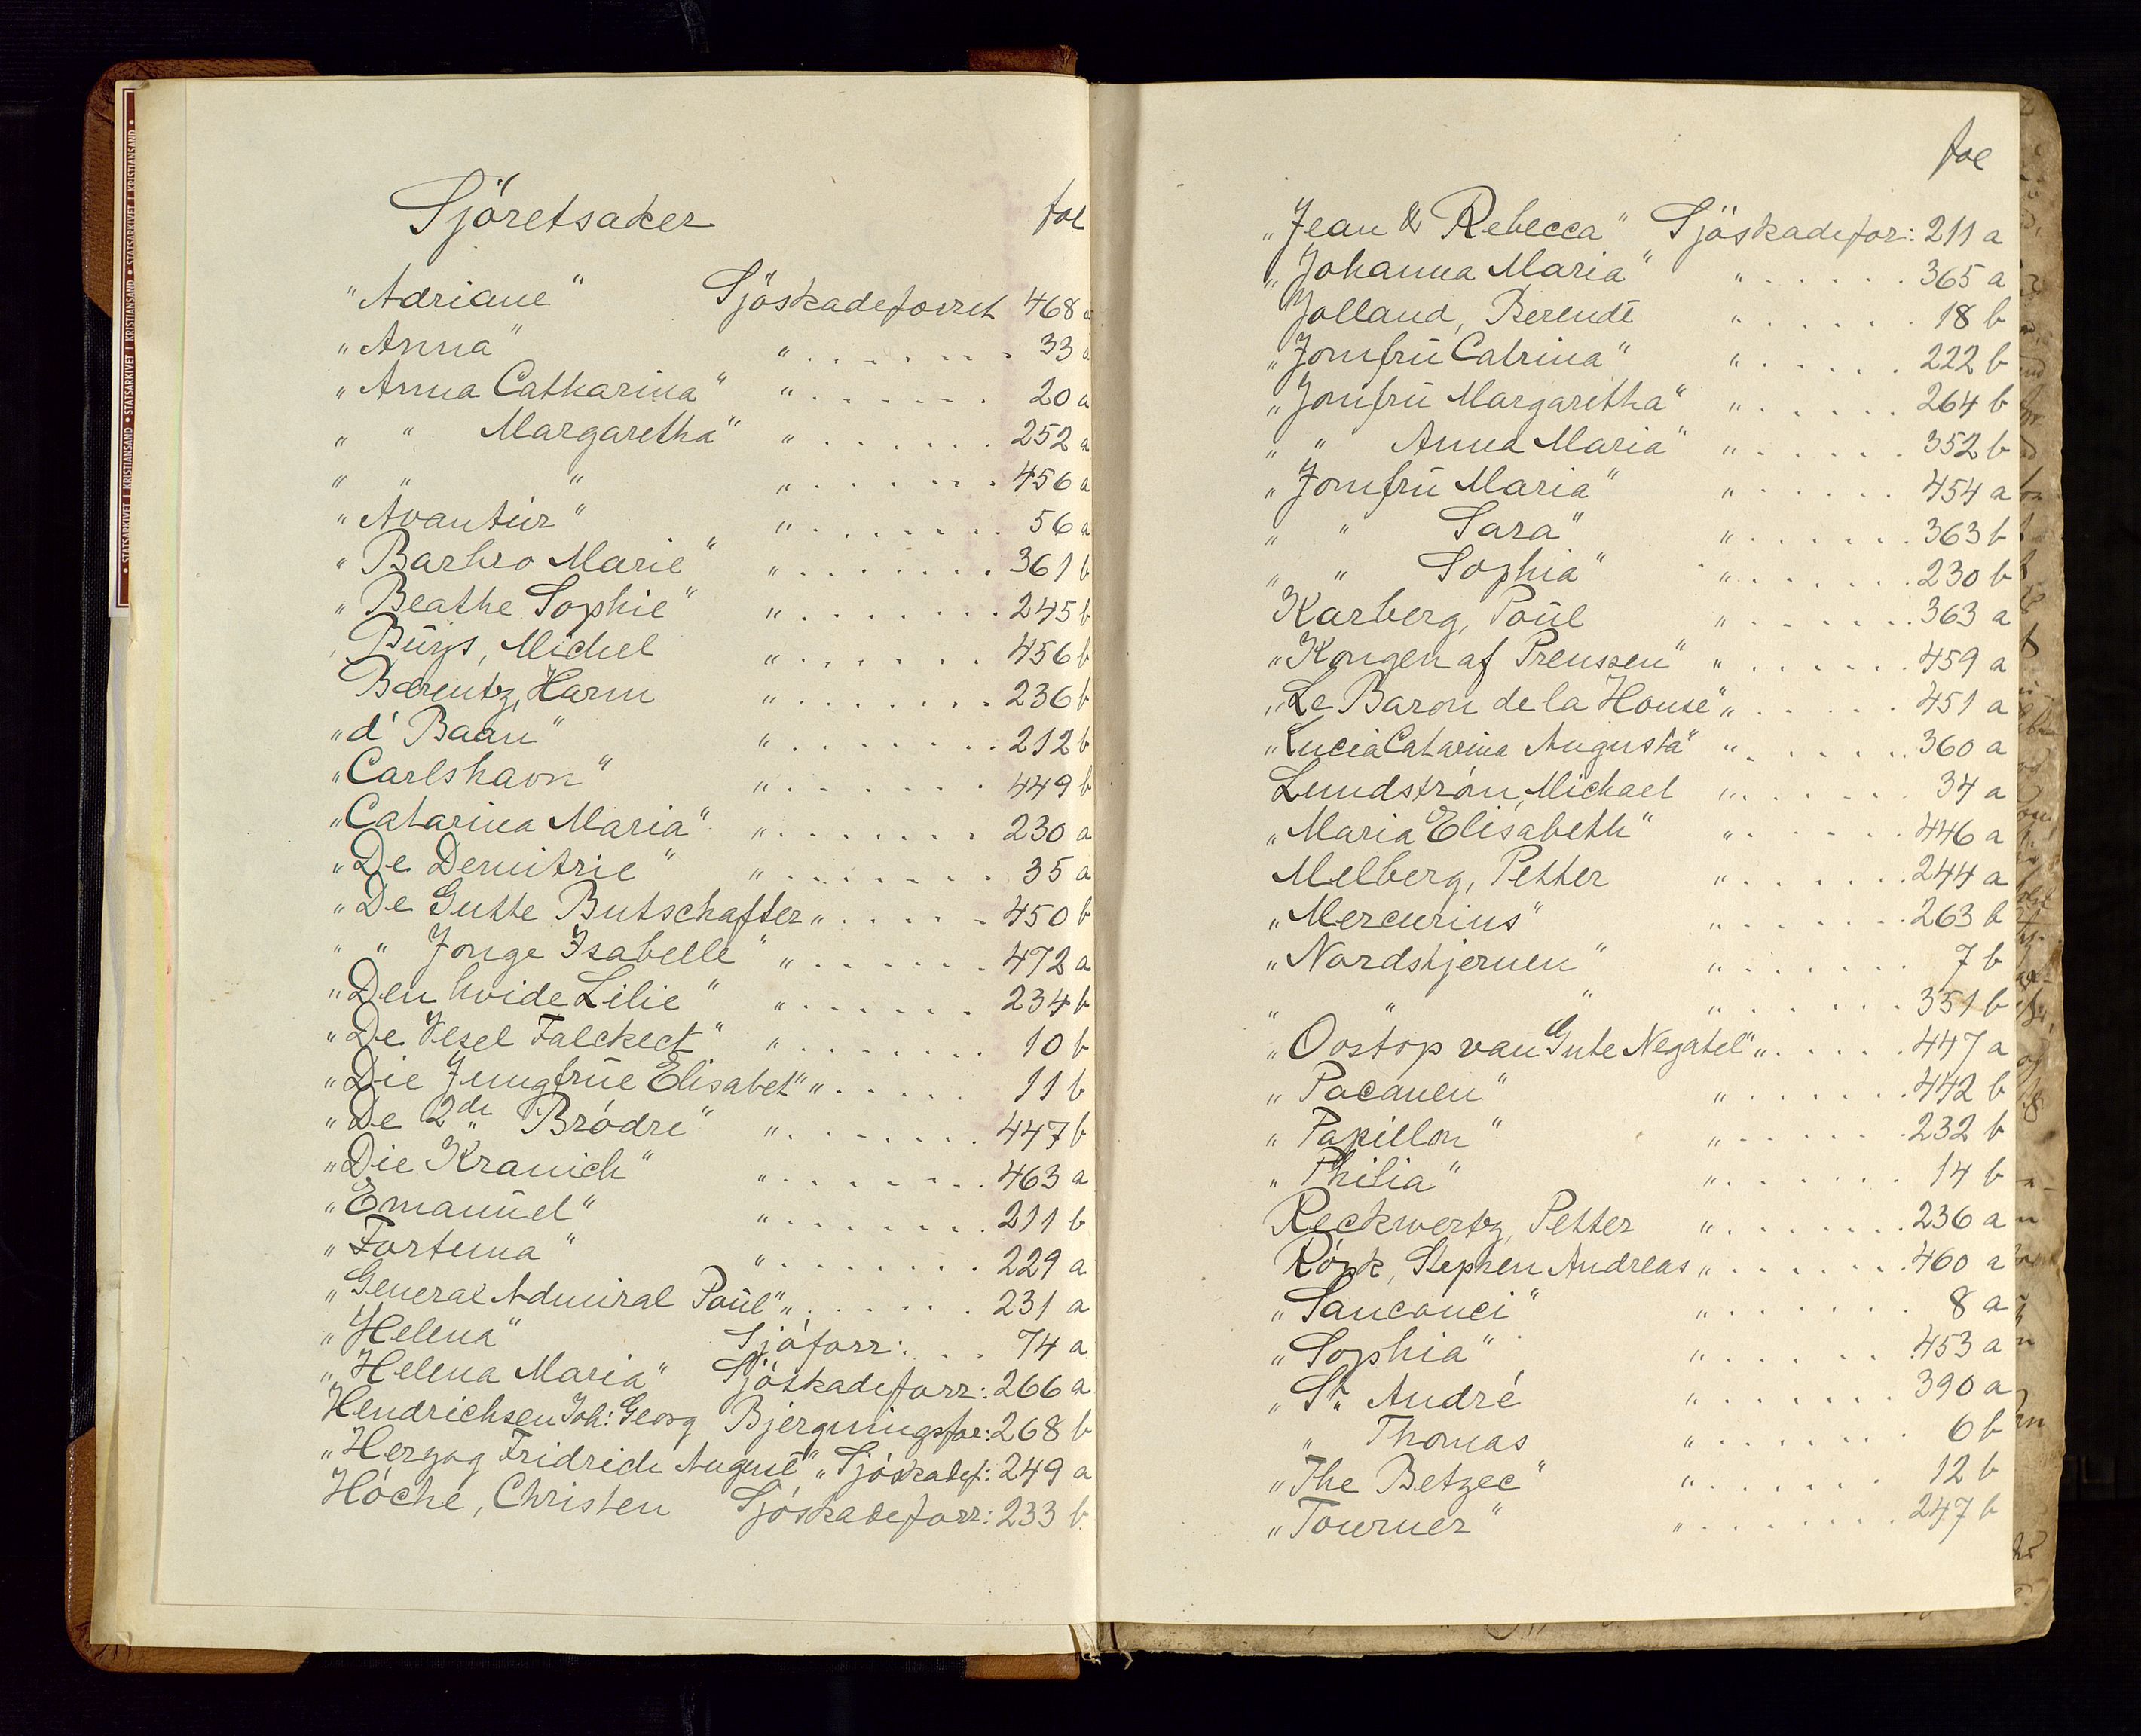 • STATSARKIVET I KRISTIANSAND • STATSARKIVET I KRISTIANSAND • STATSARKIVET I KRISTIANSAND •
Sjöretsaker fol
"Adriane" Sjöskadeforret 468 a
"Anna" " 33 a
"Anna Catharina" " 20 a
" " Margaretha" " 252 a
" " " " 456 a
"Avantür" " 56 a
"Barbro Marie" " 361 b
"Beathe Sophie" " 245 b
Büys, Michel " 456 b
Bærentz, Harm " 236 b
"d' Baan" " 212 b
"Carlshavn" " 449 b
"Catarina Maria" " 230 a
"De Demitrie" " 35 a
"De Gutte Butschafter " 450 b
" " Jonge Isabelle" " 472 a
"Den hvide Lilie" " 234 b
"De Vesel Falckect" " 10 b
"Die Jungfrüe Elisabet" " 11 b
"De 2de Brödre" " 447 b
"Die Kranich" " 463 a
"Emanüel" " 211 b
"Fortuna" " 229 a
"General Admiral Paül" " 231 a
"Helena" Sjöforr: 74 a
"Helena Maria" Sjöskadeforr: 266 a
Hendrichsen Joh: Georg Bjergningsfor: 268 b
"Herzog Fridrich August" "Sjöskadef: 249 a
Höche, Christen Sjöskadeforr: 233 b
fol
"Jean & Rebecca" Sjöskadefor: 211 a
"Johanna Maria" " 365 a
Jolland, Berendt " 18 b
"Jomfrü Catrina" " 222 b
"Jomfrü Margaretha" " 264 b
" " Anna Maria" " 352 b
"Jomfrü Maria" " 454 a
" " Sara" " 363 b
" " Sophia" " 230 b
Karberg, Poül " 363 a
"Kongen af Preussen" " 459 a
"Le Baron de la House" " 451 a
"Lucia Catarina Augusta" " 360 a
Lundström, Michael " 34 a
"Maria Elisabeth" " 446 a
Melberg, Petter " 244 a
"Mercurius" " 263 b
"Nordstjernen" " 7 b
" " " " 351 b
"Oostop van Gute Negatel" " 447 a
"Pacanen" " 442 b
"Papillon" " 232 b
"Philia" " 14 b
Reckwertz, Petter " 236 a
Rörk, Stephen Andreas " 460 a
"Sanconci" " 8 a
"Sophia" " 453 a
"St. André " 390 a
" Thomas " 6 b
"The Betzec" " 12 b
"Tourner" " 247 b